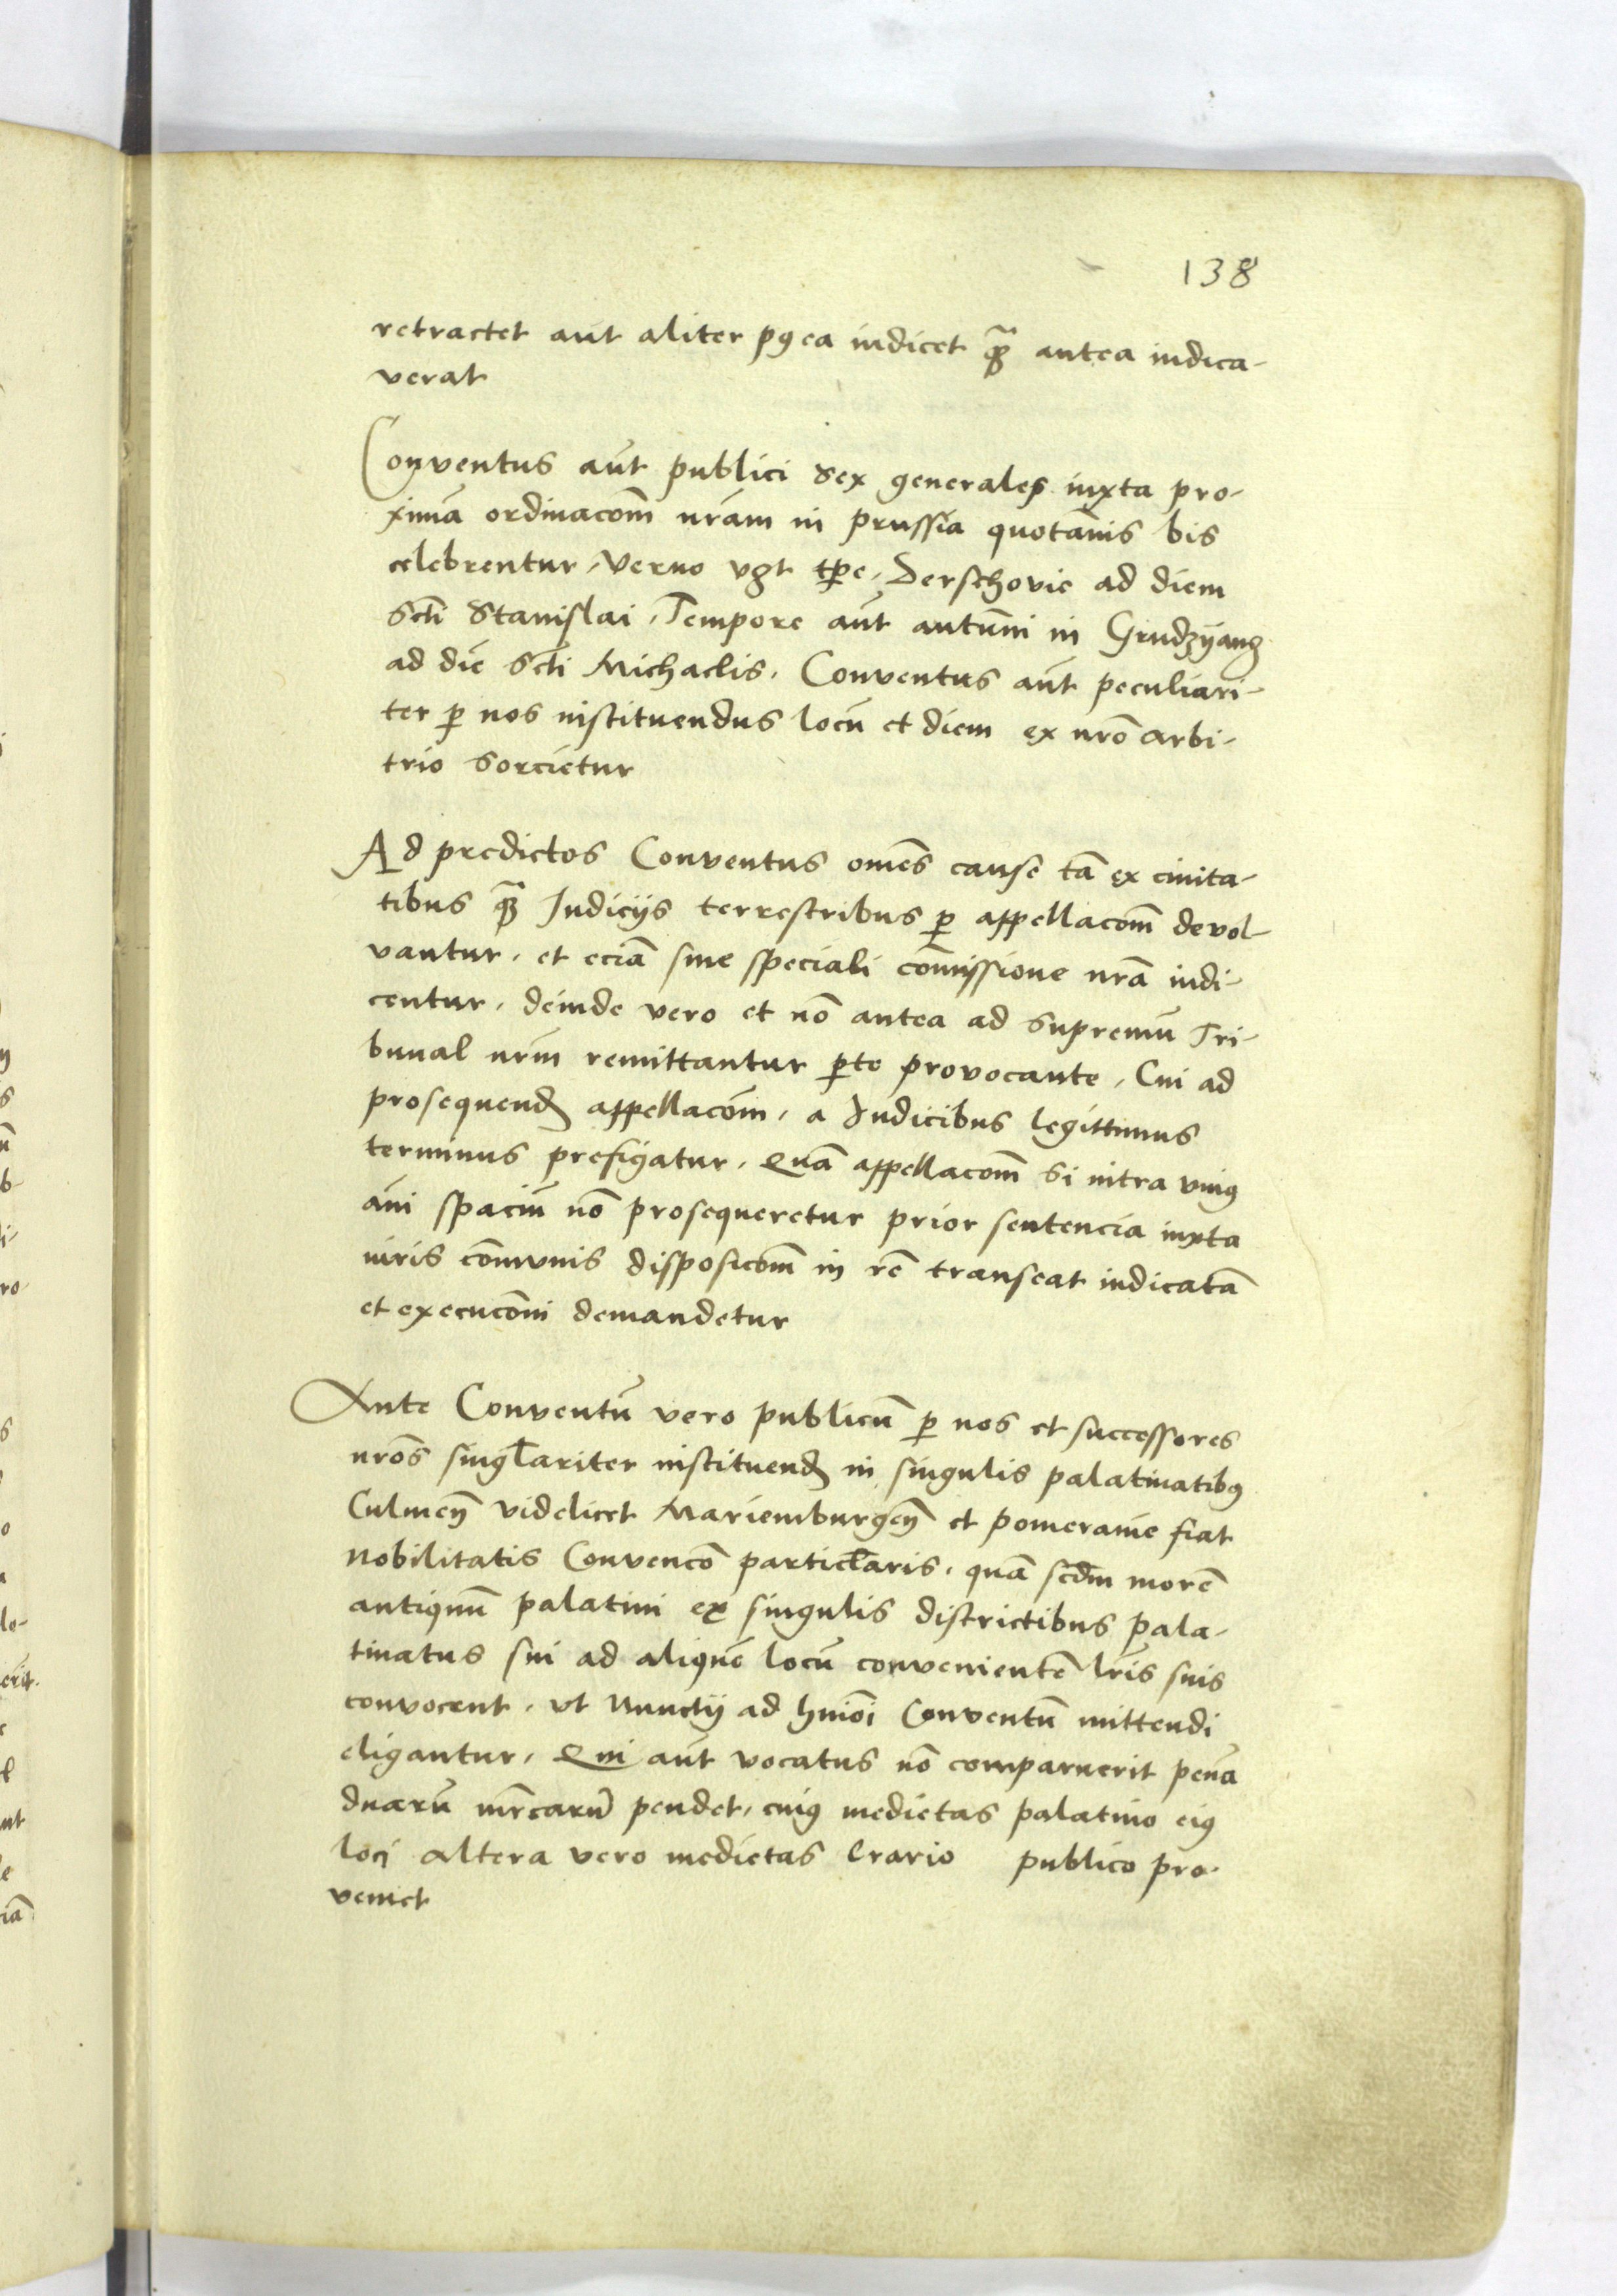 138
retractet aut aliter p9ea iudicet q̃ꝫ antea iudica-
verat
Conventus aūt publici sex generales iuxta pro-
ximā ordinacōm nrām in prussia quotānis bis
celebrentur, Verno vꝫt tꝑe, Derschovie ad diem
Scti Stanislai, Tempore aūt autūni in Grudzyąnz
ad diē Scti Michaelis. Conventus aūt peculiari-
ter ꝑ nos instituendus locū et diem ex nrō arbi-
trio sorcietur
Ad predictos Conventus omēs cause tā ex civita-
tibus q̃ꝫ Iudicijs terrestribus ꝑ appellacōm devol-
vantur, et eciā sine speciali cōmissione nrā iudi-
centur, deinde vero et nō antea ad supremū Tri-
bunal nrm̄ remittantur ꝑte provocante, Cui ad
prosequend appellacōm, a Iudicibus legittimus
terminus prefigatur, Quā appellacōm si intra vniꝰ
āni spaciū nō prosequeretur prior sentencia iuxta
iuris cōmunis disposicōm in rē transeat iudicatā
et execucōni demandetur
Ante Conventū vero publicū ꝑ nos et successores
nrōs singłariter instituend in singulis palatinatibꝰ
Culmeñ videlicet Mariemburgeñ et pomeranie fiat
Nobilitatis Convencō particłaris, quā scdm̄ morē
antiquū palatini ex singulis districtibus pala-
tinatus sui ad aliquē locū convenientē lrīs suis
convocent, vt Nunctij ad hmōi Conventū mittendi
eligantur, Qui aūt vocatus nō comparuerit penā
duarū mrcarū pendet, cuiꝰ medietas palatino eiꝰ
loci altera vero medietas Erario publico pro-
veniet